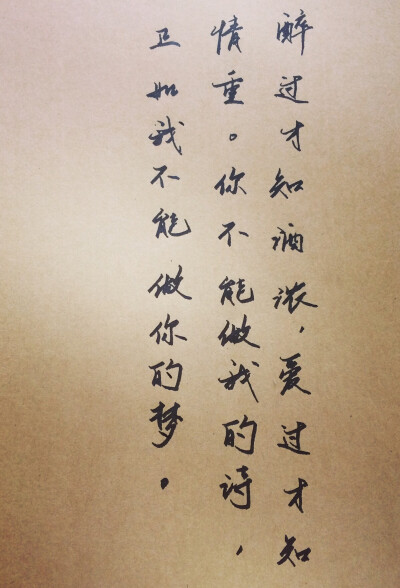 醉过才知酒浓，爱过才知
情重。你不能做我的诗，
正如我不能做你的梦。